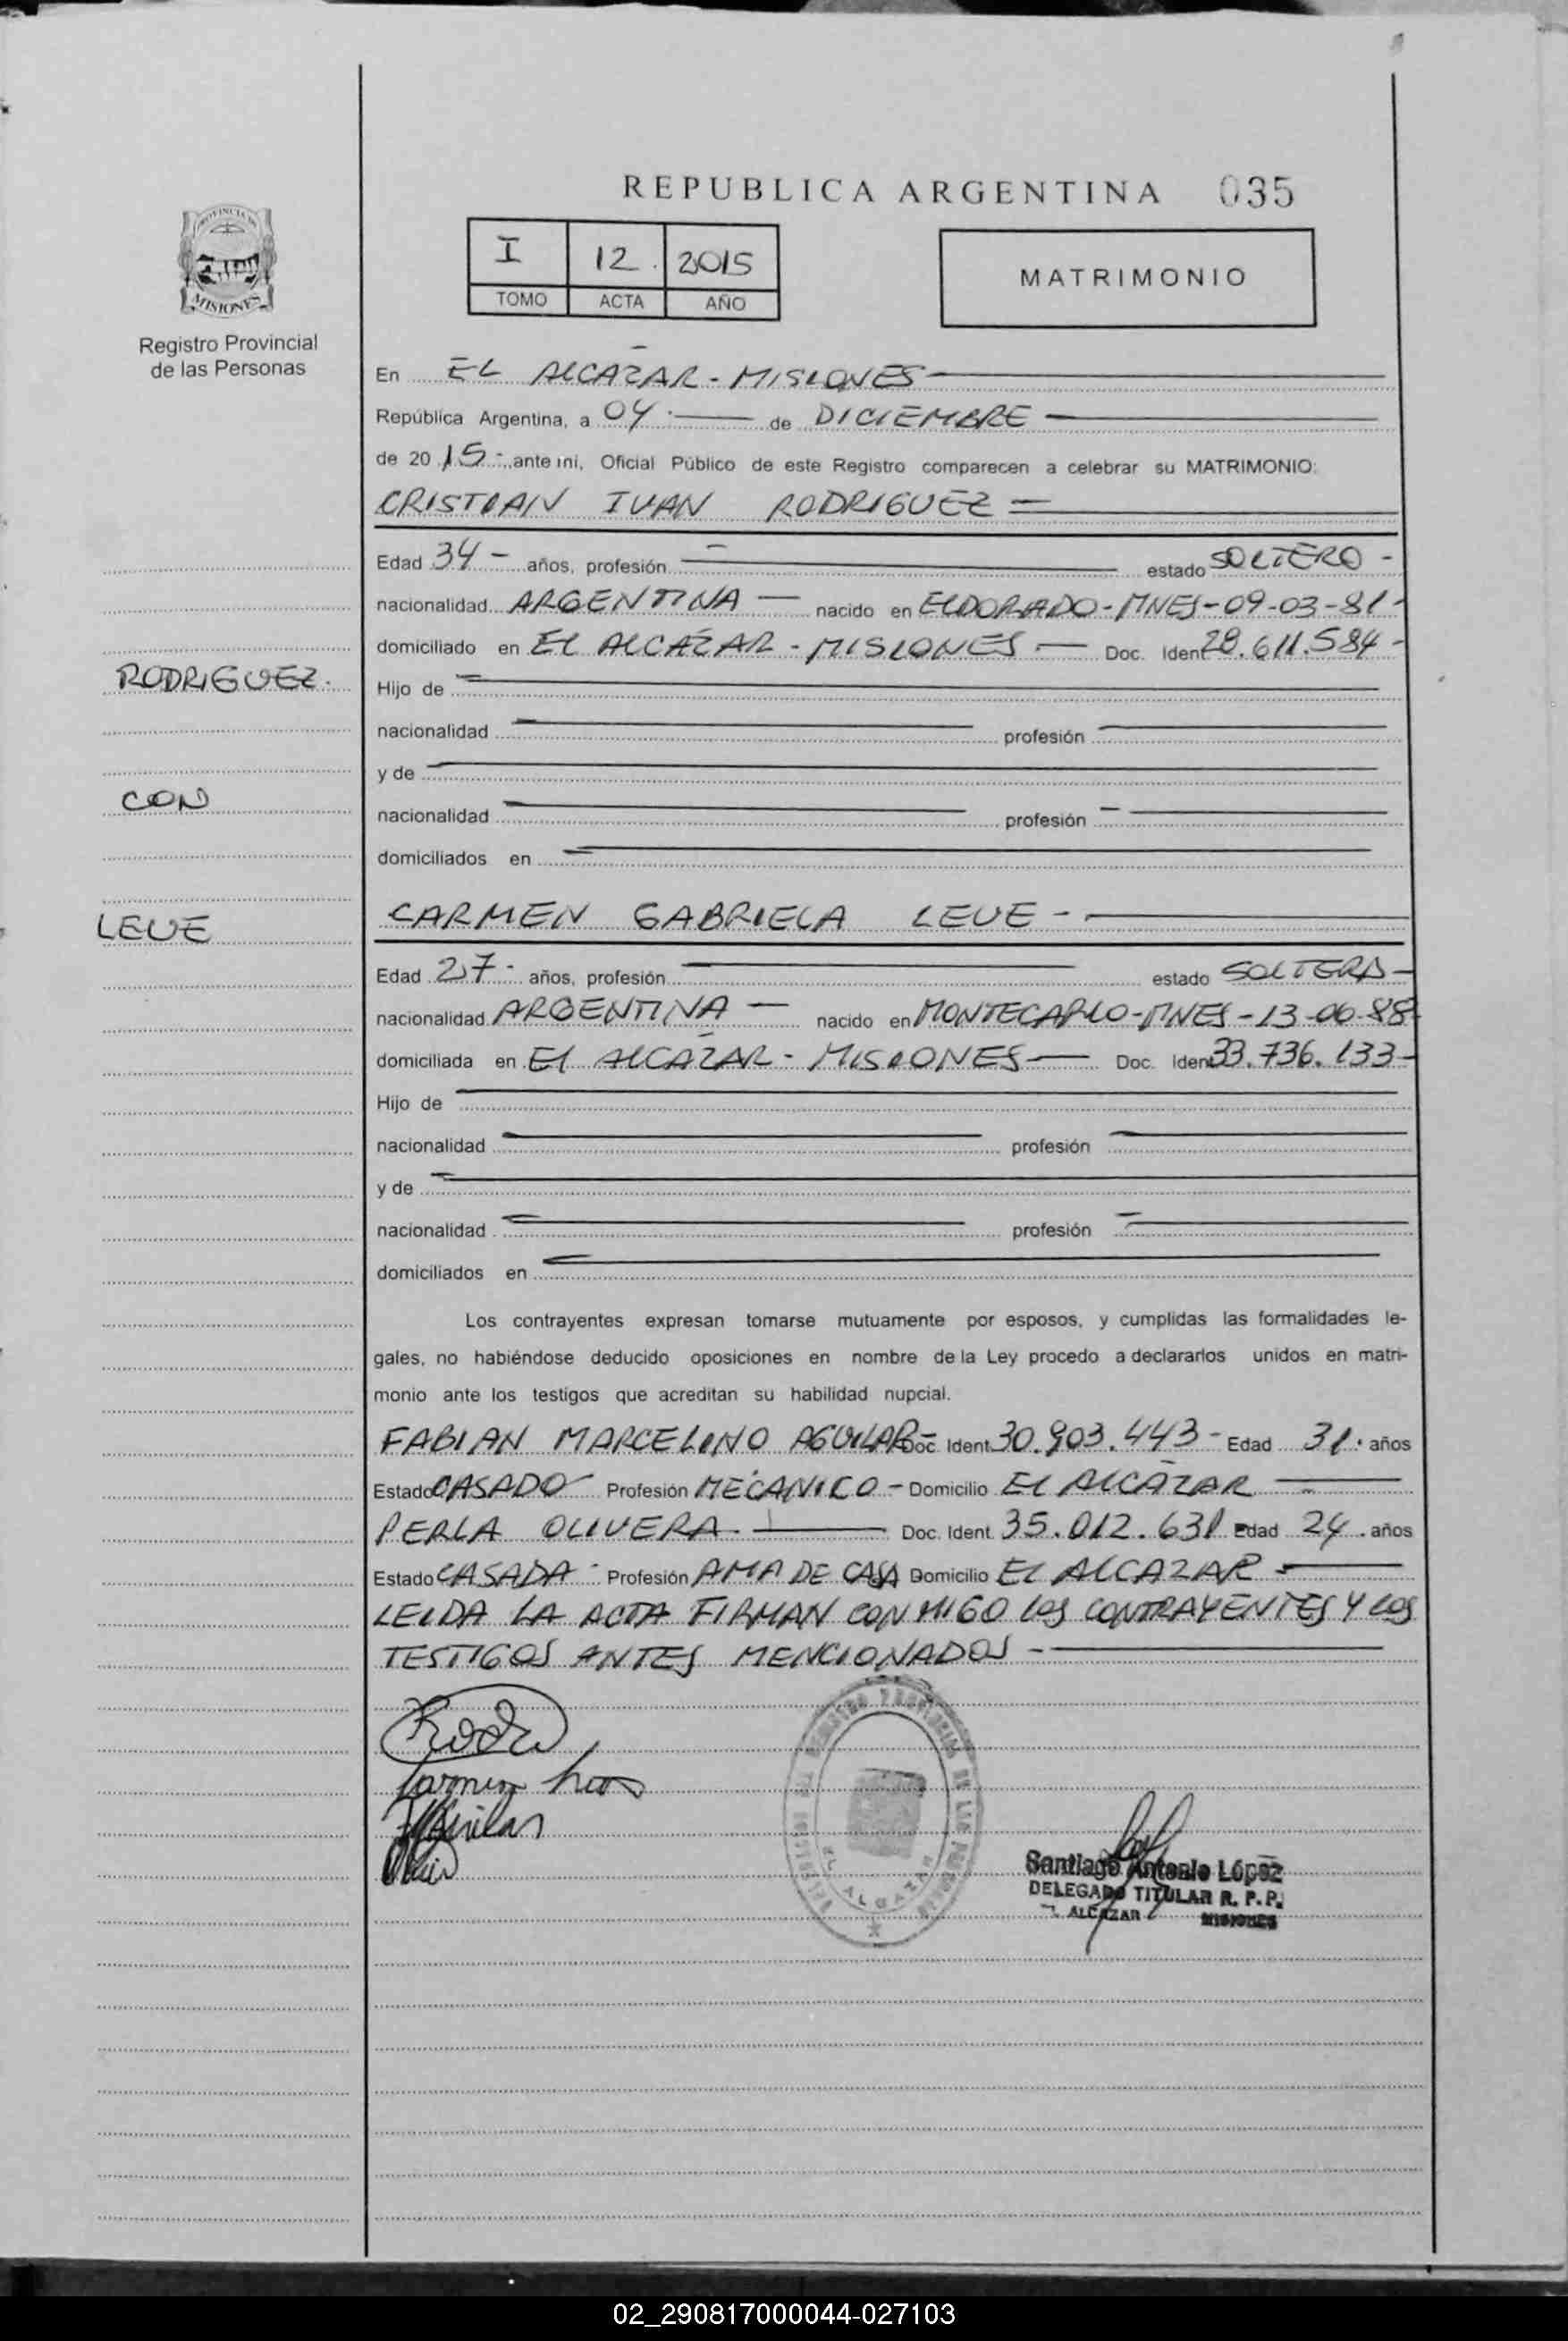 REPUBLICA ARGENTINA 035
PROVINCIA DE
MISIONES
Registro Provincial
de las Personas
I 12. 2015
TOMO ACTA AÑO
MATRIMONIO
En EL ALCAZAR - MISIONES
República Argentina, a 04 de DICIEMBRE
de 2015 - ante mi, Oficial Público de este Registro comparecen a celebrar su MATRIMONIO:
CRISTIAN IVAN RODRIGUEZ =
Edad 34 - años, profesión — estado SOLTERO -
nacionalidad ARGENTINA — nacido en ELDORADO-MNES-09-03-81-
domiciliado en EL ALCAZAR - MISIONES — Doc. Ident 28.611.584 -
RODRIGUEZ.
Hijo de —
nacionalidad — profesión —
y de —
CON
nacionalidad — profesión —
domiciliados en —
LEUE
CARMEN GABRIELA LEUE -
Edad 27 - años, profesión — estado SOLTERA -
nacionalidad ARGENTINA — nacido en MONTECARLO-MNES-13-06-88-
domiciliada en El ALCAZAR - MISIONES — Doc. Ident 33.736.133 -
Hijo de —
nacionalidad — profesión —
y de —
nacionalidad — profesión —
domiciliados en —
Los contrayentes expresan tomarse mutuamente por esposos, y cumplidas las formalidades le-
gales, no habiéndose deducido oposiciones en nombre de la Ley procedo a declararlos unidos en matri-
monio ante los testigos que acreditan su habilidad nupcial.
FABIAN MARCELINO AGUILAR - Doc. Ident. 30.903.443 - Edad 31. años
Estado CASADO - Profesión MECANICO - Domicilio El ALCAZAR —
PERLA OLIVERA — Doc. Ident. 35.012.631 Edad 24 . años
Estado CASADA - Profesión AMA DE CASA Domicilio EL ALCAZAR —
LEIDA LA ACTA FIRMAN CONMIGO LOS CONTRAYENTES Y LOS
TESTIGOS ANTES MENCIONADOS -
Carmen
Aguilar
Santiago Antonio López
DELEGADO TITULAR R. P. P.
ALCAZAR MISIONES
02_290817000044-027103